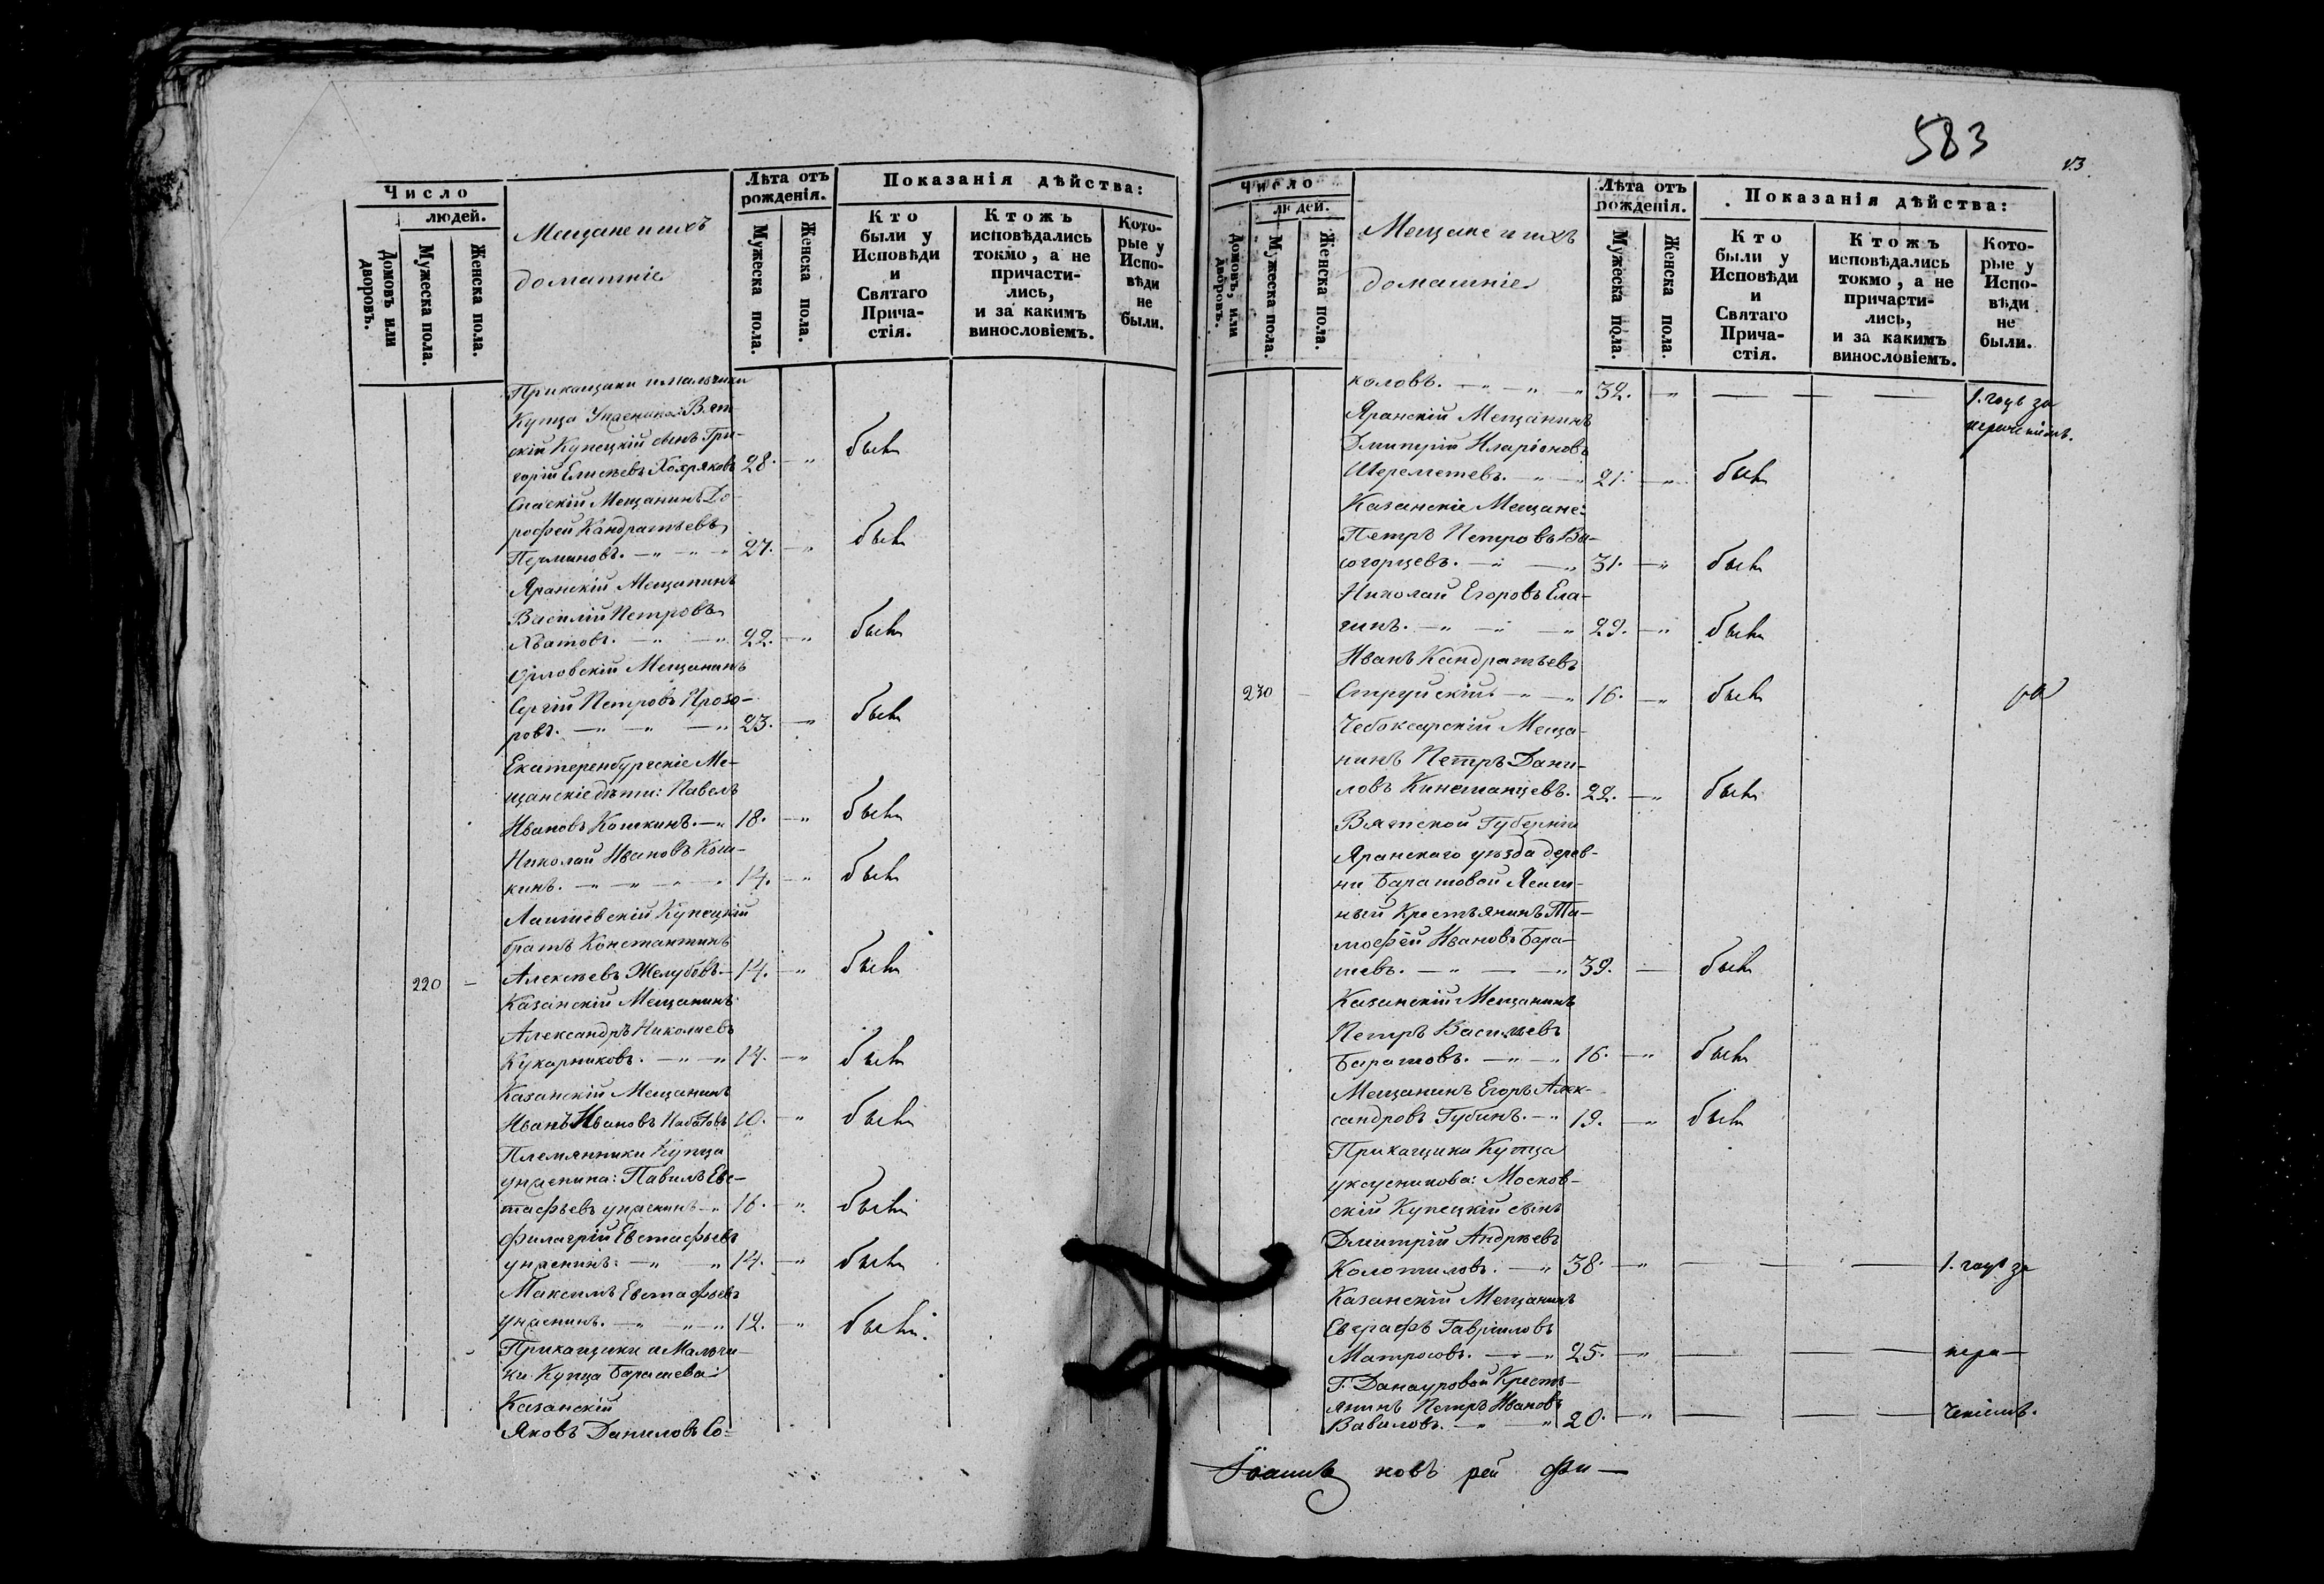 Число
людей.
Домовъ или дворовъ.
Мужеска пола.
Женска пола.
Мещане и ихъ
домашніе
Лѣта отъ рожденія.
Мужеска пола.
Женска пола.
Показанія дѣйства:
Кто были у Исповѣди и Святаго Прича-стія.
Ктожъ исповѣдались токмо, а не причасти-лись, и за какимъ винословіемъ.
Кото-рые у Испо-вѣди не были.
Прикащики и мальчики
Купца Унженина: Вят
скій Купецкій сынъ Гри-
горій Елисѣевъ Хохряковъ 28. — „ былъ
Спаскій Мещанинъ До-
рофей Кандратьевъ
Перминовъ. — „ — „ — „ 27. — „ былъ
Яранскій Мещанинъ
Василій Петровъ
Хватовъ. — „ — „ 22. — „ былъ
Орловскій Мещанинъ
Сергій Петровъ Прозо-
ровъ. — „ — „ — „ 23. — „ былъ
Екатеренбургскіе Ме-
щанскіе дѣти: Павелъ
Ивановъ Кошкинъ. — „ 18. — „ былъ
Николай Ивановъ Кош-
кинъ. — „ — „ — „ — „ 14. — „ былъ
Лаишевскій Купецкій
братъ Константинъ
220 — Алексѣевъ Желубовъ. — 14. — „ былъ
Казанскій Мещанинъ
Александръ Николаевъ
Кукарниковъ. — „ — „ 14. — „ былъ
Казанскій Мещанинъ
Иванъ Ивановъ Набатовъ 10. — „ былъ
Племянники Купца
унженина: Павилъ Евс-
тафьевъ унженинъ — „ 16. — „ былъ
Филагрій Евстафьевъ
унженинъ: — „ — „ 14. — „ былъ
Максимъ Евстафьевъ
унженинъ. — „ — „ — „ 12. — „ былъ.
Прикащики и Мальчи-
ки Купца Баратева:
Казанскій
Яковъ Даниловъ Со-
583
Число
людей.
Домовъ, или дворовъ.
Мужеска пола.
Женска пола.
Мещане и ихъ
домашніе
Лѣта отъ рожденія.
Мужеска пола.
Женска пола.
Показанія дѣйства:
Кто были у Исповѣди и Святаго Прича-стія.
Ктожъ исповѣдались токмо, а не причасти-лись, и за какимъ винословіемъ.
Кото-рые у Испо-вѣди не были.
коловъ. — „ — „ — „ 32. — „ — — — 1. годъ за
нераченіемъ.
Яранскій Мещанинъ
Дмитрій Иларіоновъ
Шереметевъ. — „ — „ 21. — „ былъ
Казанскіе Мещане:
Петръ Петровъ Вы-
согорцевъ. — „ — „ 31. — „ былъ
Николай Егоровъ Ела-
гинъ. — „ — „ — „ 29. — „ былъ
Иванъ Кандратьевъ
230 — Струйскій — „ — „ 16. — „ былъ
Чебоксарскій Меща-
нинъ Петръ Дани-
ловъ Кинеманцевъ. 22. — „ былъ
Вятской Губерніи
Яранскаго уѣзда дерев-
ни Баратовой Ясаш-
ный Крестьянинъ Ти-
мофей Ивановъ Бара-
тевъ. — „ — „ 39. — былъ
Казанскій Мещанинъ
Петръ Васильевъ
Баратовъ. — „ — „ 16. — „ былъ
Мещанинъ Егоръ Алек-
сандровъ Губинъ. — „ 19. — „ былъ
Прикащики Купца
уксусникова: Москов-
скій Купецкій сынъ
Дмитрій Андрѣевъ
Колотиловъ. — „ 38. — „ — — — 1. годъ за
Казанскій Мещанинъ
Евграфъ Гавриловъ
Матросовъ. — „ — „ 25. — „ — — — нера-
Г. Данауровой Кресть-
янинъ Петръ Ивановъ
Вавиловъ. — „ — „ 20. — „ — — — ченіемъ.
Іоаннъ новъ рей Фи —